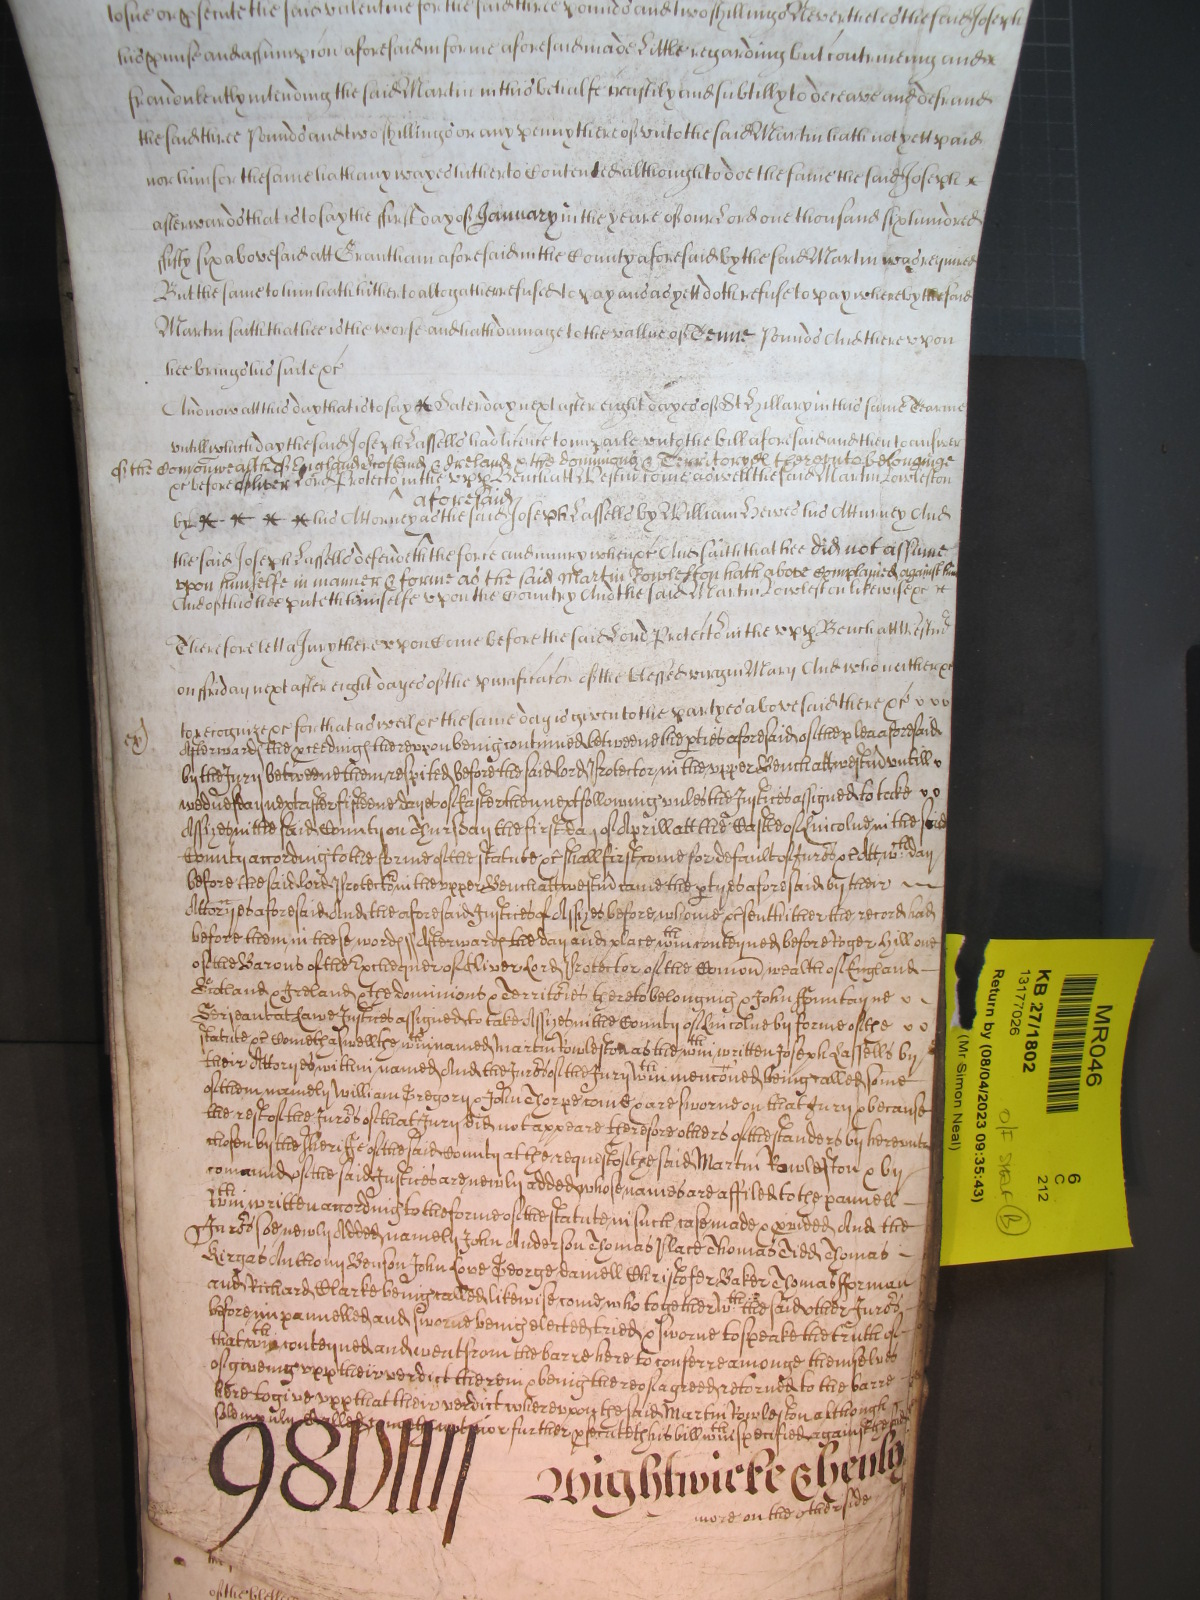 to sue or prosecute the said Valentine for the said three pounds and two shillings Neverthelesse the said Joseph
his promise and assumpcion aforesaid in forme aforesaid made Little regarding but contriveing and
fraudulently intending the said Martin in this behalfe craftily and subtilly to deceave and defraud
the said three Pounds and two shillings or any penny thereof unto the said Martin hath not yett paid
nor him for the same hath any wayes hitherto Contented althought to doe the same the said Joseph x
afterwards that is to say the ffirst day of January in the yeare of our Lord one thousand six hundred
fifty six abovesaid att Grantham aforesaid in the County aforesaid by the said Martin was required
But the same to him hath hitherto altogather refused to pay and as yett doth refuse to pay whereby the said
Martin saith that hee is the worse and hath damage to the vallue of Tenne Pounds And there upon
hee brings his suite &c
And now att this day that is to say Saterday next after eight dayes of St Hillary in this same Tearme
untill which day the said Joseph Cassells had licence to imparle unto the bill aforesaid and then to answer
of the Comonwealth of England Scotland & Ireland & the dominions & Territoryes thereunto belonginge
&c before Oliver Lord Protector in the upp Bench att Westm come aswell the said Martin Rowleston
aforesaid
by his Attorney as the said Joseph Cassells by William Hewes his Atturney And
the said Joseph Cassells defendeth the force and iniury when &c And saith that hee did not assume
upon himselfe in manner & forme as the said Martin Rowleston hath above Complained against him
And of this hee putteth himselfe upon the Country And the said Martin Rowleston likewise &c
Therefore lett a Jury thereupon Come before the said Lord Protector in the upp Bench att Westm
on ffriday next after eight dayes of the purificacion of the blessed virgin Mary And who neither &c
to recognize &c for that aswell &c the same day is given to the partyes abovesaid there &c
Afterwards the p'ceedings thereupon being continued betweene the pties aforesaid of the plea aforesaid
by the Jury betweene them respited before the said lord Protector in the upper Bench att westm untill
wednesday next after fifteene dayes of Easter then next following unles the Justices assigned to take
Assizes in the said County on Thursday the first day of Aprill att the Castle of Lincolne in the said
County according to the forme of the statute &c shall first come for default of Jurors &c Att wch day
before the said lord Protector in the upper Bench att westm came the ptyes aforesaid by their
Attorneyes aforesaid And the aforesaid Justices of Assizes before whome &c sent hither the record had
before them in these words Afterwards the day and place within conteyned before Roger Hill one
of the Barons of the Exchequer of Oliver Lord Protector of the Comon wealth of England
Scotland & Ireland & the dominions & Territories thereto belonging & John ffountayne
Serjeant at Lawe Justices assigned to take Assizes in the County of Lincolne by forme of the
statute &c Cometh aswell the within named Martin Rowleston as the within written Joseph Cassells by
their Attornyes within named And the Jurors of the Jury within mencioned being called some
of them namely William Gregory & John Thorpe come & are sworne on that Jury & because
the rest of the Jurors of that Jury did not appeare therefore others of the standers by hereunto
chosen by the Sheriffe of the said County at the request of the said Martin Rowleston & by
comand of the said Justices are newly added whose names are affiled to the pannell
within written according to the forme of the statute in such case made & provided And the
Jurors soe newly Added namely John Anderson Thomas Place Thomas Tidd Thomas
Anthony Benson John Love George Daniell Christofer Baker Thomas fforman
and Richard Clarke being called likewise come who together with the said other Jurors
before impannelled and sworne being elected tried & sworne to speake the truth of
that within conteyned and went from the barre here to conferre amonge themselves
of giveing upp their verdict therein & being thereof agreed retorned to the barre
here to give upp that their verdict whereupon the said Martin Rowleston although
solempnly Called cometh not nor further p'secuteth his bill within specified against the said
98D
Wightwicke & henly
more on the other side
of the
MR046
KB 27/1802
13177026
6
C
212
Return by (08/04/2023 09:35:43)
(Mr Simon Neal)